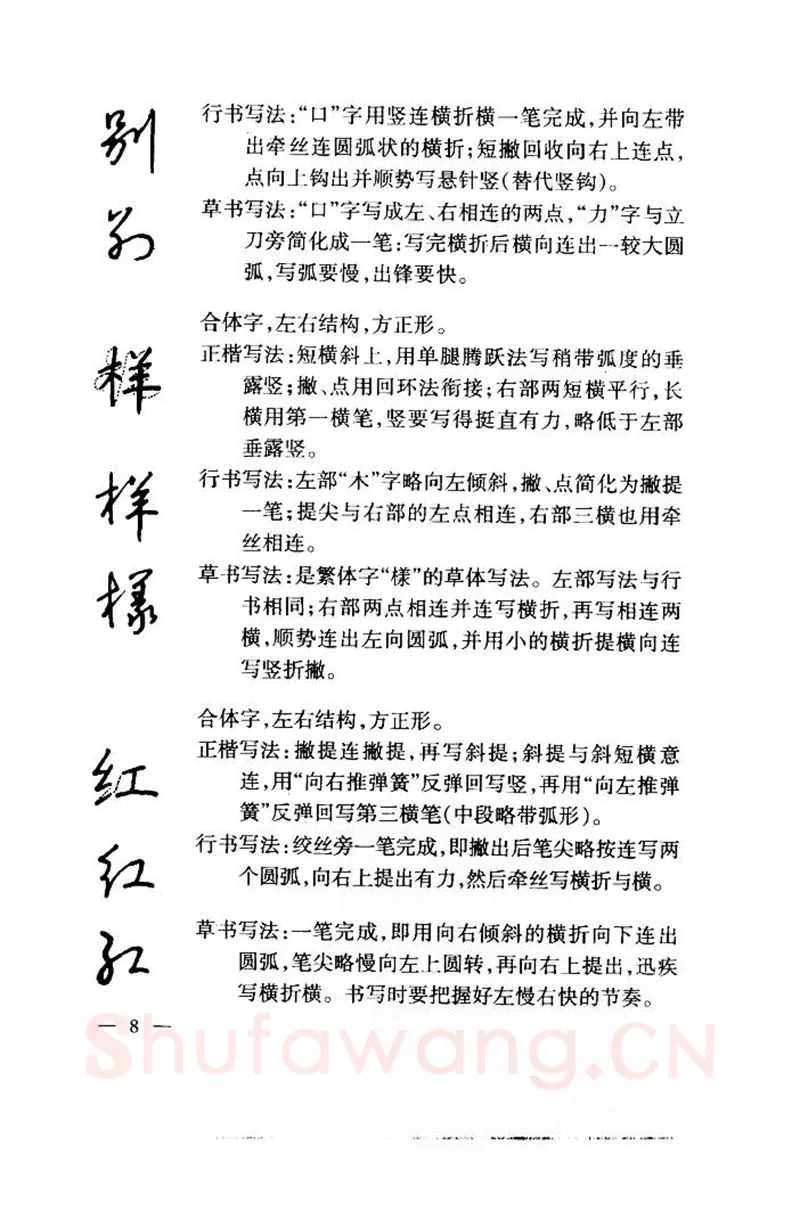 别
行书写法:“口”字用竖连横折横一笔完成,并向左带
出牵丝连圆弧状的横折;短撇回收向右上连点,
点向上钩出并顺势写悬针竖(替代竖钩)。
别
草书写法:“口”字写成左、右相连的两点,“力”字与立
刀旁简化成一笔:写完横折后横向连出一较大圆
弧,写弧要慢,出锋要快。
合体字,左右结构,方正形。
样
正楷写法:短横斜上,用单腿腾跃法写稍带弧度的垂
露竖;撇、点用回环法衔接;右部两短横平行,长
横用第一横笔,竖要写得挺直有力,略低于左部
垂露竖。
样
行书写法:左部“木”字略向左倾斜,撇、点简化为撇提
一笔;提尖与右部的左点相连,右部三横也用牵
丝相连。
樣
草书写法:是繁体字“樣”的草体写法。左部写法与行
书相同;右部两点相连并连写横折,再写相连两
横,顺势连出左向圆弧,并用小的横折提横向连
写竖折撇。
合体字,左右结构,方正形。
红
正楷写法:撇提连撇提,再写斜提;斜提与斜短横意
连,用“向右推弹簧”反弹回写竖,再用“向左推弹
簧”反弹回写第三横笔(中段略带弧形)。
红
行书写法:绞丝旁一笔完成,即撇出后笔尖略按连写两
个圆弧,向右上提出有力,然后牵丝写横折与横。
红
草书写法:一笔完成,即用向右倾斜的横折向下连出
圆弧,笔尖略慢向左上圆转,再向右上提出,迅疾
写横折横。书写时要把握好左慢右快的节奏。
— 8 —
Shufawang.CN